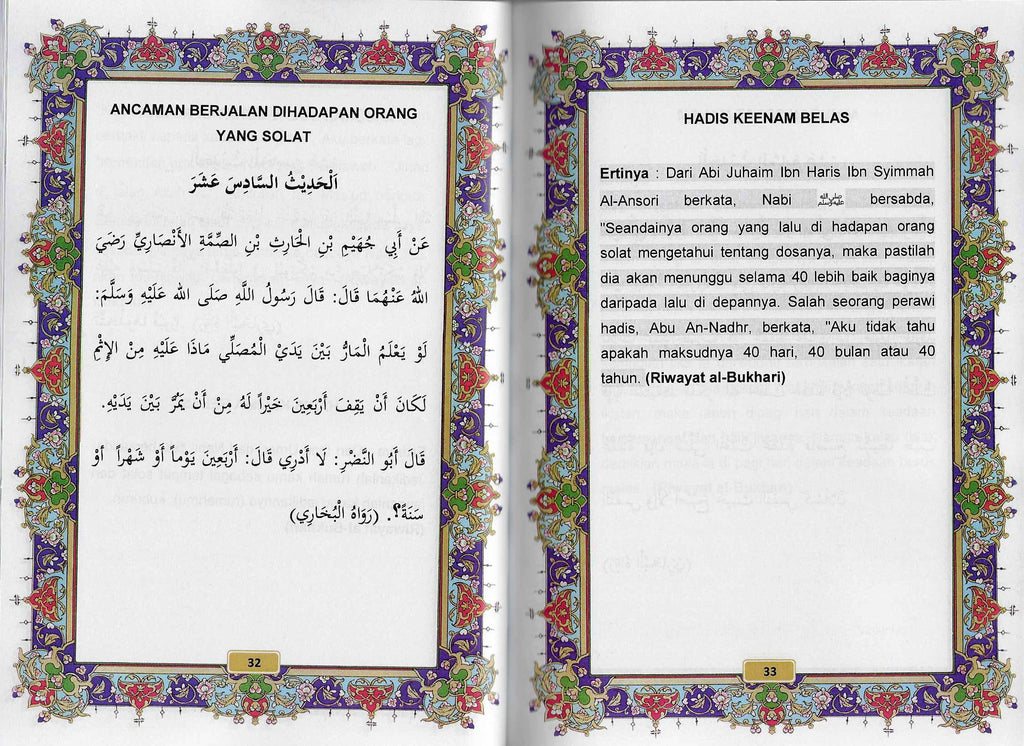 ANCAMAN BERJALAN DIHADAPAN ORANG
YANG SOLAT
اَلْحَدِيْثُ السَّادِسَ عَشَرَ
عَنْ أَبِي جُهَيْمِ بْنِ الْحَارِثِ بْنِ الصِّمَّةِ الْأَنْصَارِيِّ رَضَيَ
اللهُ عَنْهُمَا قَالَ: قَالَ رَسُولُ اللَّهِ صَلَى الله عَلَيْهِ وَسَلَّمَ:
لَوْ يَعْلَمُ الْمَارُّ بَيْنَ يَدَيْ الْمُصَلِّي مَاذَا عَلَيْهِ مِنْ الإِثْمِ
لَكَانَ أَنْ يَقِفَ أَرْبَعِينَ خَيْراً لَهُ مِنْ أَنْ يَمُرَّ بَيْنَ يَدَيْهِ.
قَالَ أَبُو النَّضْرِ: لَا أَدْرِي قَالَ: أَرْبَعِينَ يَوْماً أَوْ شَهْراً أَوْ
سَنَةً؟. (رَوَاهُ الْبُخَارِي)
32
HADIS KEENAM BELAS
Ertinya : Dari Abi Juhaim Ibn Haris Ibn Syimmah
Al-Ansori berkata, Nabi ﷺ bersabda,
"Seandainya orang yang lalu di hadapan orang
solat mengetahui tentang dosanya, maka pastilah
dia akan menunggu selama 40 lebih baik baginya
daripada lalu di depannya. Salah seorang perawi
hadis, Abu An-Nadhr, berkata, "Aku tidak tahu
apakah maksudnya 40 hari, 40 bulan atau 40
tahun. (Riwayat al-Bukhari)
33